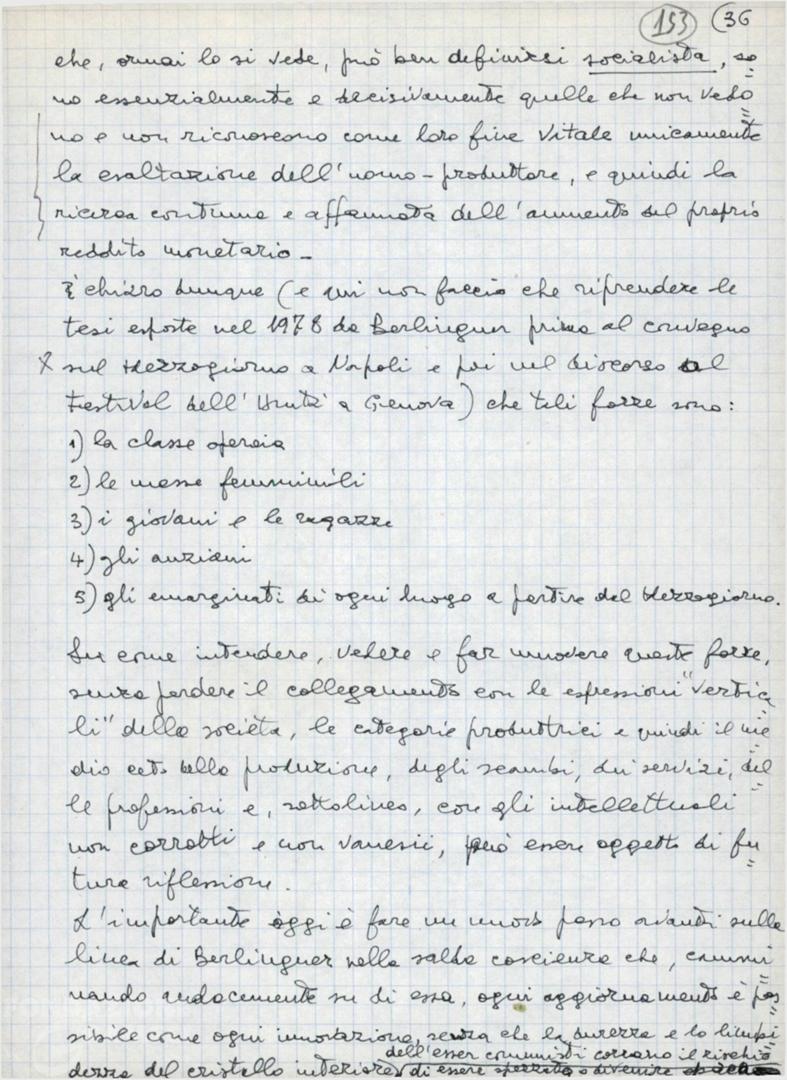 153 (36
che, ormai lo si vede, può ben definirsi socialista, so
no essenzialmente e decisivamente quelle che non vedo
no e non riconoscono come loro fine vitale unicamente
la esaltazione dell'uomo-produttore, e quindi la
ricerca continua e affannata dell'aumento del proprio
reddito monetario -
È chiaro dunque (e qui non faccio che riprendere le
tesi esposte nel 1978 da Berlinguer prima al convegno
X sul Mezzogiorno a Napoli e poi nel discorso al
Festival dell'Unità a Genova) che tali forze sono:
1) la classe operaia
2) le masse femminili
3) i giovani e le ragazze
4) gli anziani
5) gli emarginati di ogni luogo a partire dal Mezzogiorno.
Su come intendere, vedere e far muovere queste forze,
senza perdere il collegamento con le espressioni "vertica
li" della società, le categorie produttrici e quindi il me
dio ceto della produzione, degli scambi, dei servizi, del
le professioni e, sottolineo, con gli intellettuali
non corrotti e non vanesii, può essere oggetto di fu
tura riflessione.
L'importante oggi è fare un nuovo passo avanti sulla
linea di Berlinguer nella salda coscienza che, cammi
nando audacemente su di essa, ogni aggiornamento è pos
sibile come ogni innovazione, senza che la durezza e la limpi
dell'esser comunisti corrano il rischio
dezza del cristallo interiore di essere spezzata o divenire